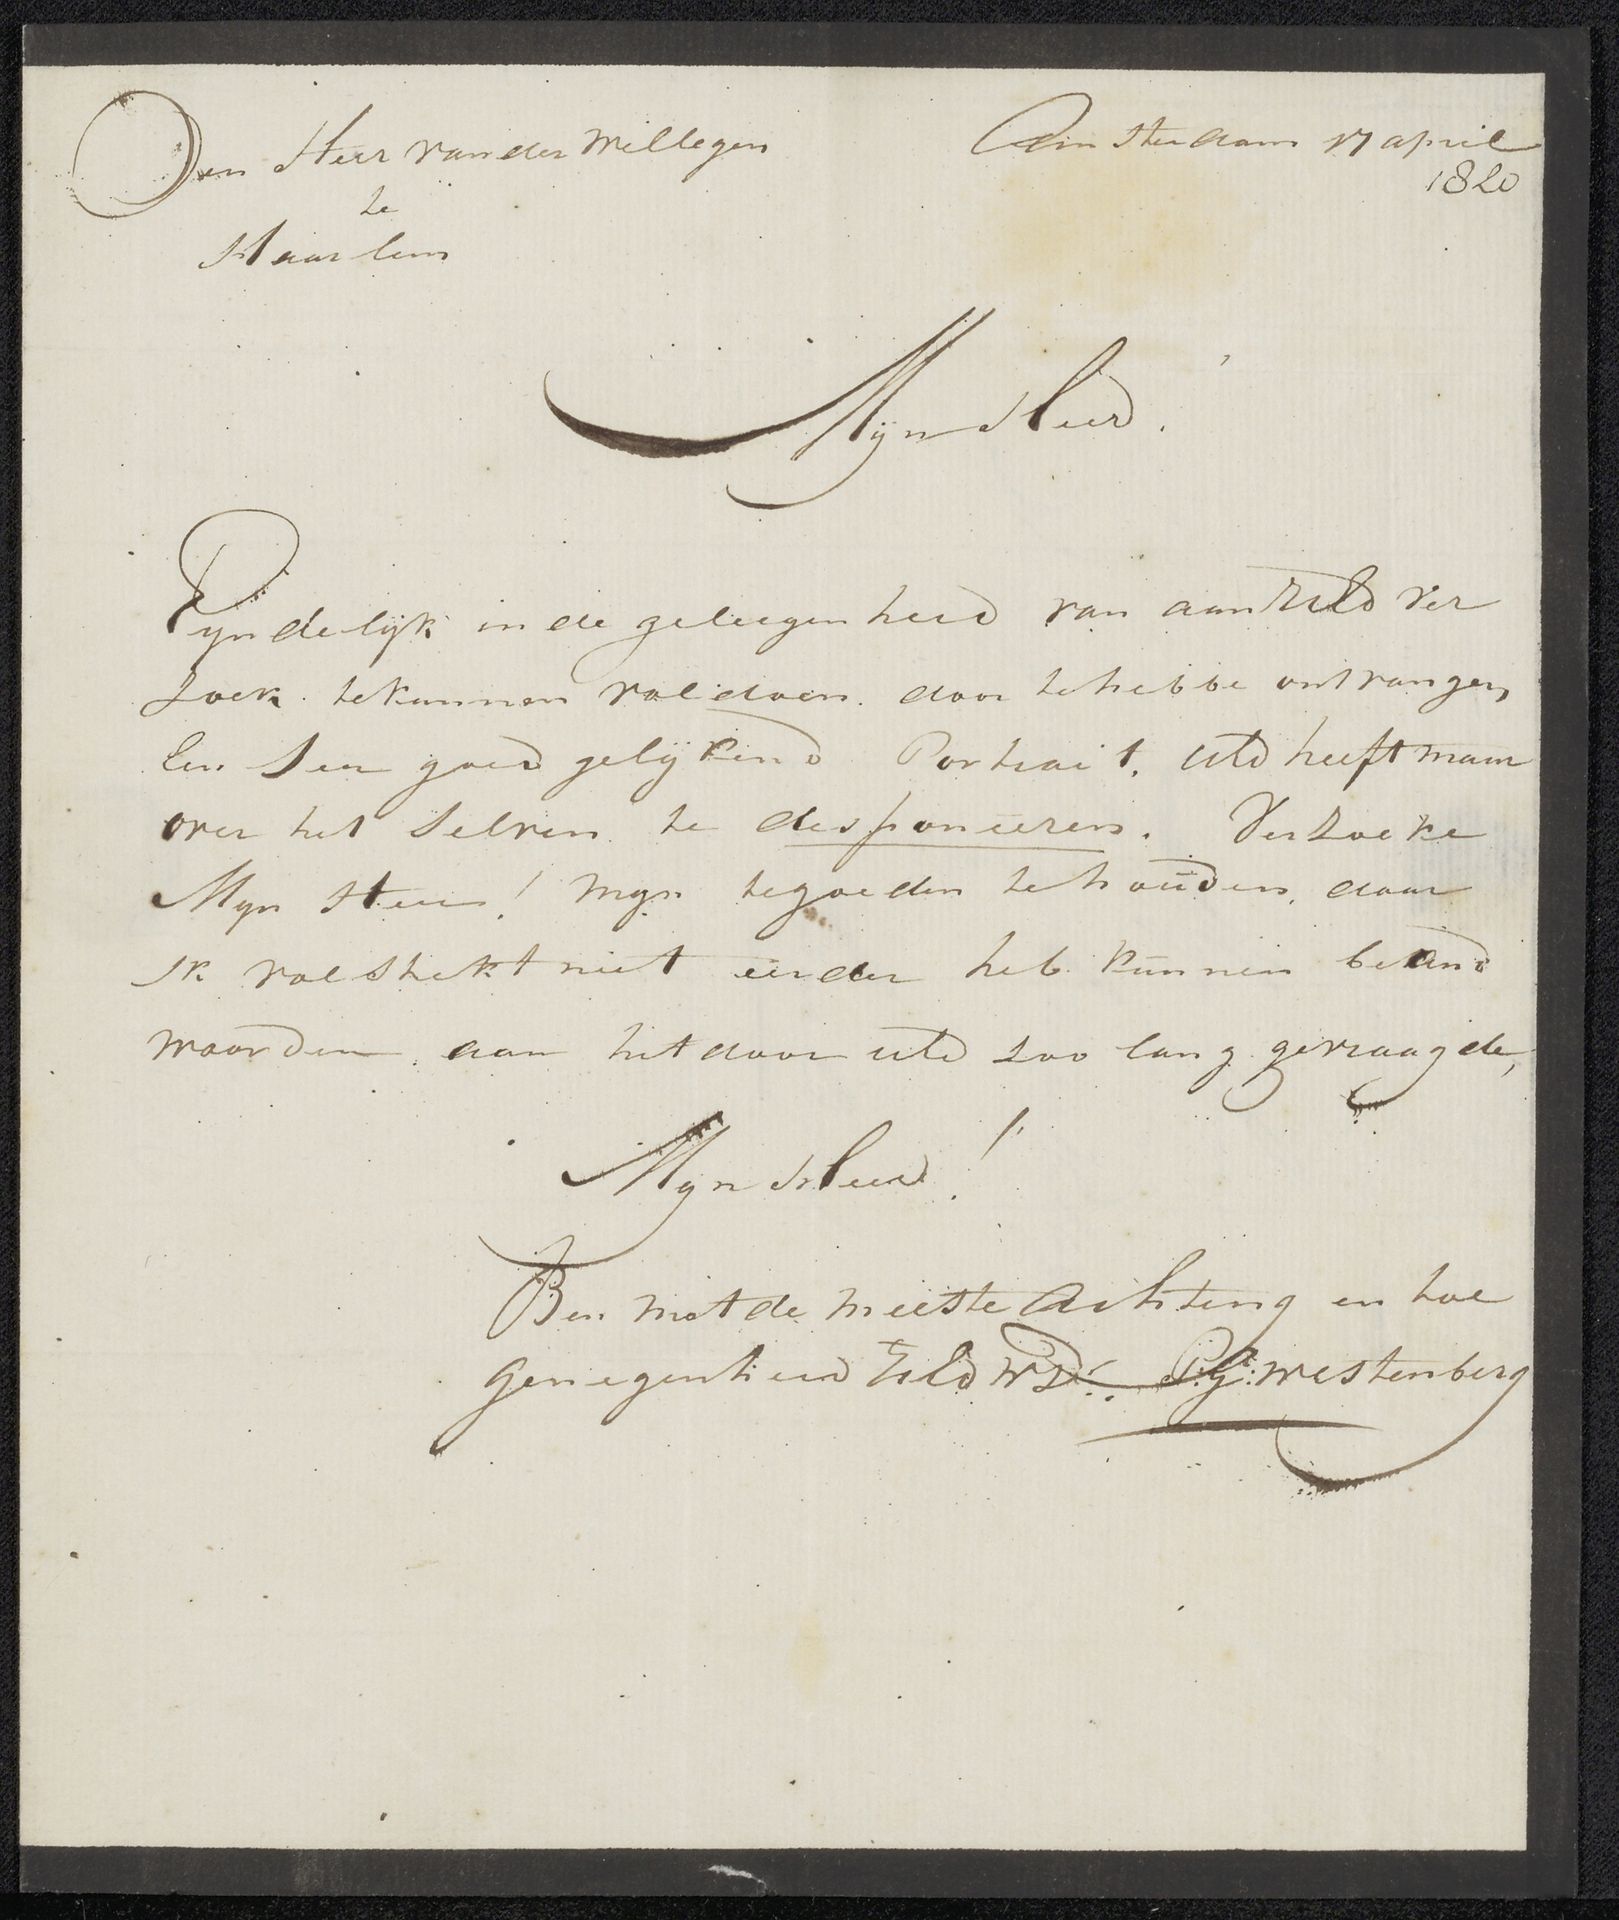 Den Heer van der Willegen
te
Haarlem
Amsterdam 17 april
1820
Mijn Heer.
Eyndelijk in de geleegenheid van aan UEd Ver
zoek te kunnen voldoen. door te hebbe ontvangen,
Een Seer goed gelijkend Portrait. UEd heeft maar
over het Selven te desponeeren. Verzoeke
Mijn Heer! Mijn te goeden te houden, daar
ik volstrekt niet eerder heb kunnen beand
woorden aan het door UEd zoo lang gevraagde,
Mijn Heer!
Ben met de meeste Achting en toe
genegenheid UEd WD. P:G: Westenberg